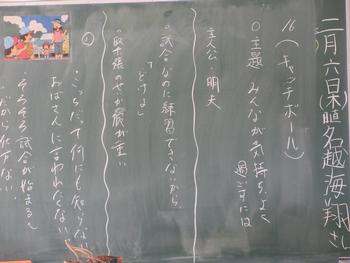 二月六日(木)日直名越海翔さん
16(キャッチボール)
○主題 みんなが気持ちよく
過ごすには
主人公・明夫
・試合なのに練習できないから。
「どけよ」
・最張のせが腹が重い
②
・こっちだって何にも知らない
おばさんに言われたくない。
・そろそろ試合が始まる
だから仕方ない